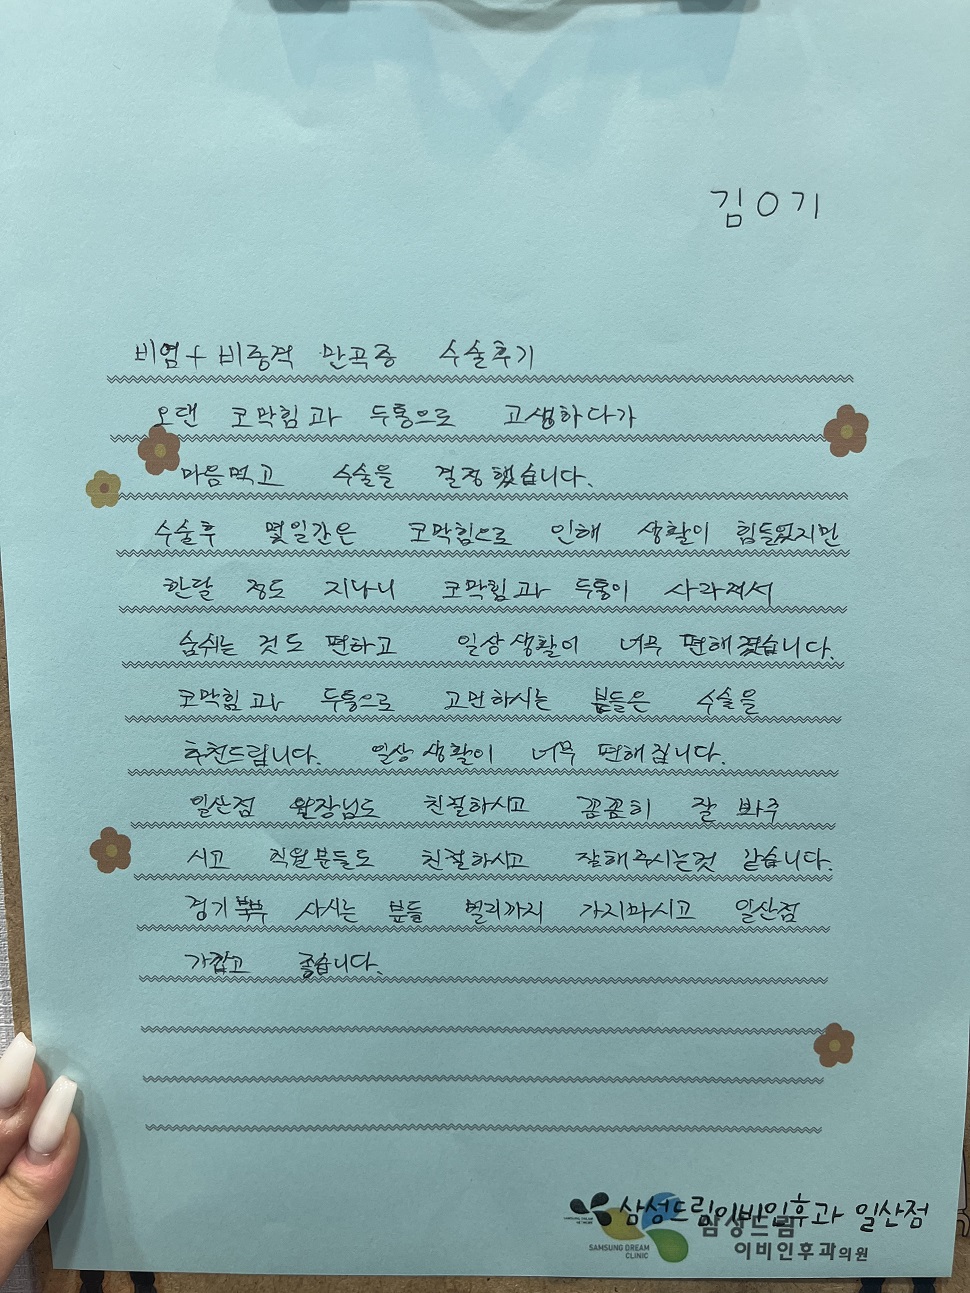 김O기
비염+비중격 만곡증 수술후기
오랜 코막힘과 두통으로 고생하다가
마음먹고 수술을 결정했습니다.
수술후 몇일간은 코막힘으로 인해 생활이 힘들었지만
한달 정도 지나니 코막힘과 두통이 사라져서
숨쉬는 것도 편하고 일상생활이 너무 편해졌습니다.
코막힘과 두통으로 고민하시는 분들은 수술을
추천드립니다. 일상생활이 너무 편해집니다.
일산점 원장님도 친절하시고 꼼꼼히 잘 봐주
시고 직원분들도 친절하시고 잘해주시는것 같습니다.
경기북부 사시는 분들 멀리까지 가지마시고 일산점
가깝고 좋습니다.
삼성드림이비인후과 일산점
삼성드림
SAMSUNG DREAM
CLINIC
이비인후과의원